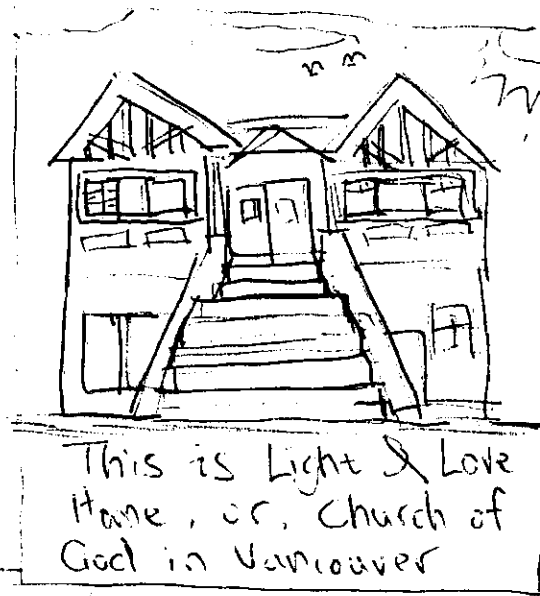 This is Light & Love
Home, or, Church of
God in Vancouver